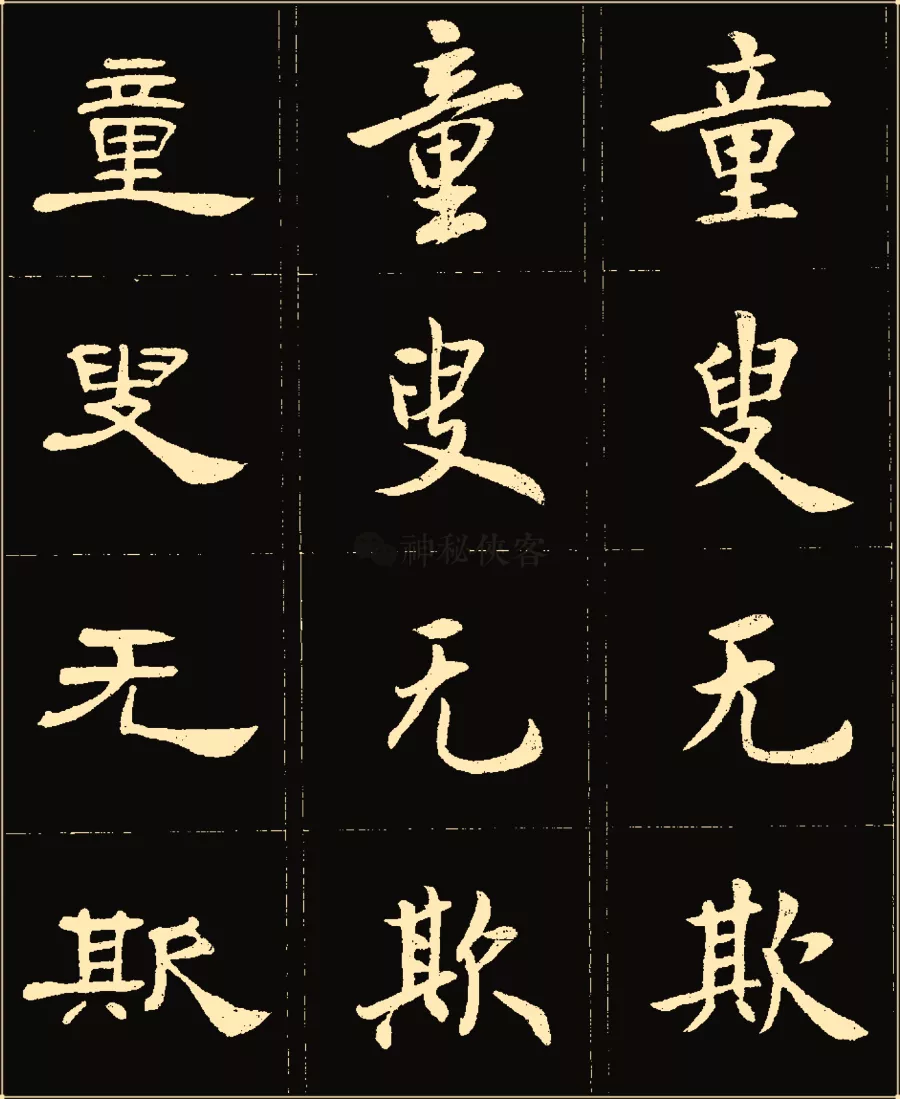 童叟无欺
童叟无欺
童叟无欺
神秘侠客